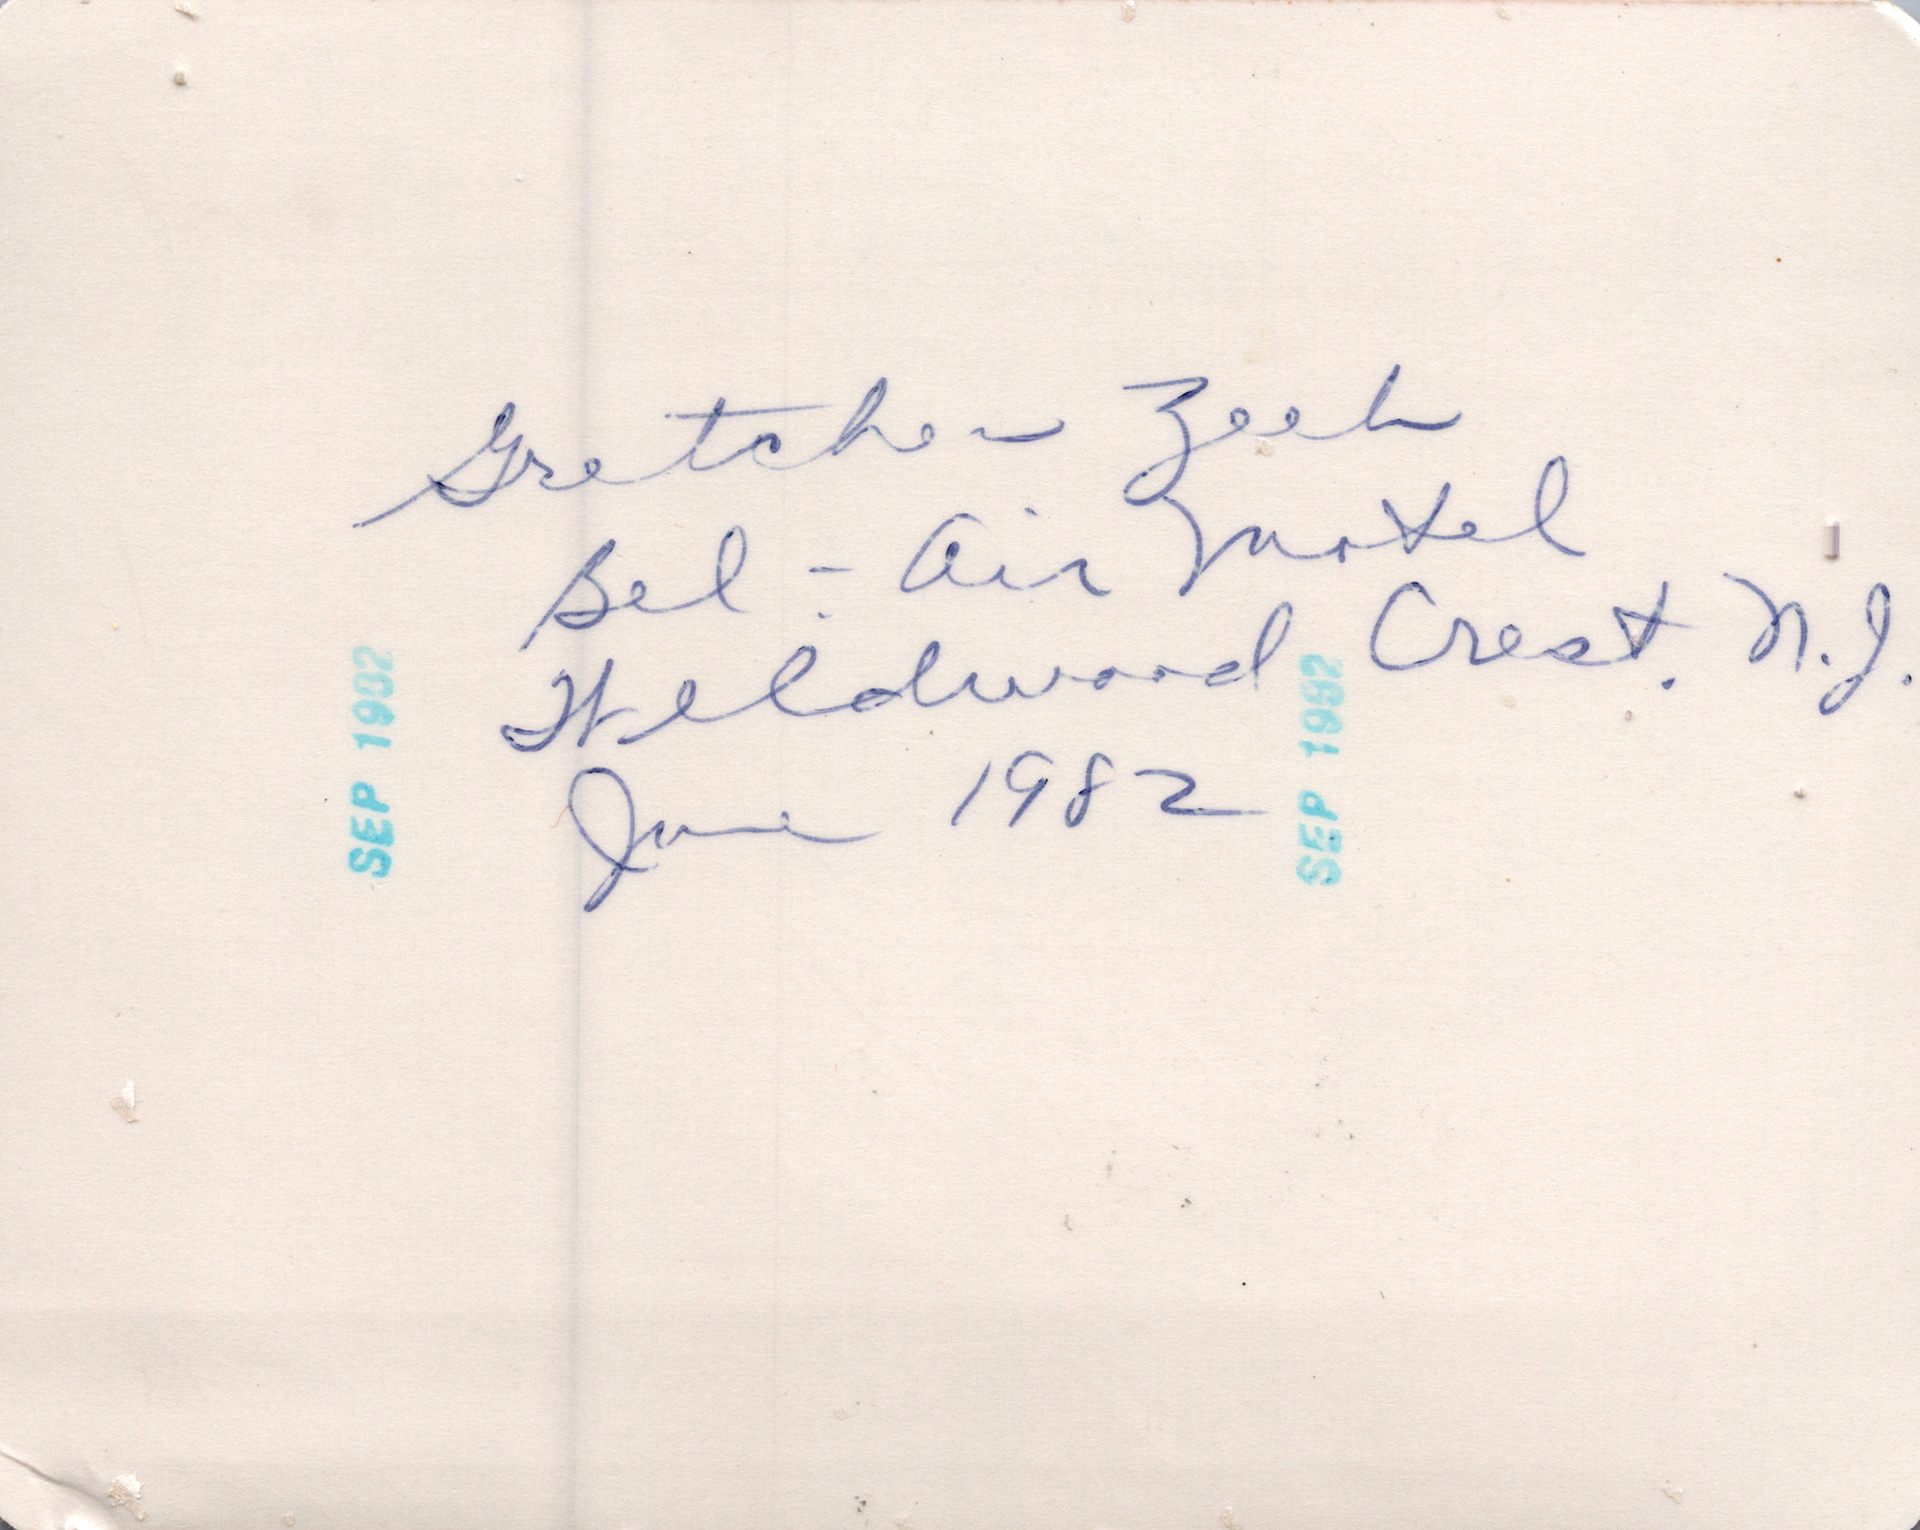 Gretchen Zeeh
Bel-Air Motel
Wildwood Crest. N.J.
June 1982
SEP 1982
SEP 1982